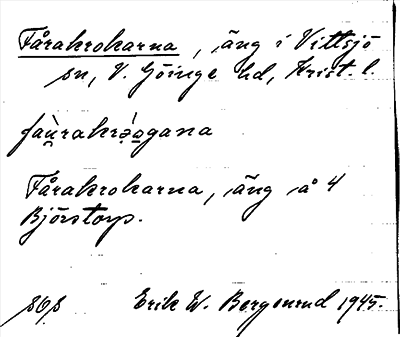 Fårakrokarna, äng i Vittsjö
sn, V. Göinge hd, Krist. l.
faùrakrə́ogana
Fårakrokarna, äng å 4
Björstorp.
sös Erik W. Bergenrud 1945.